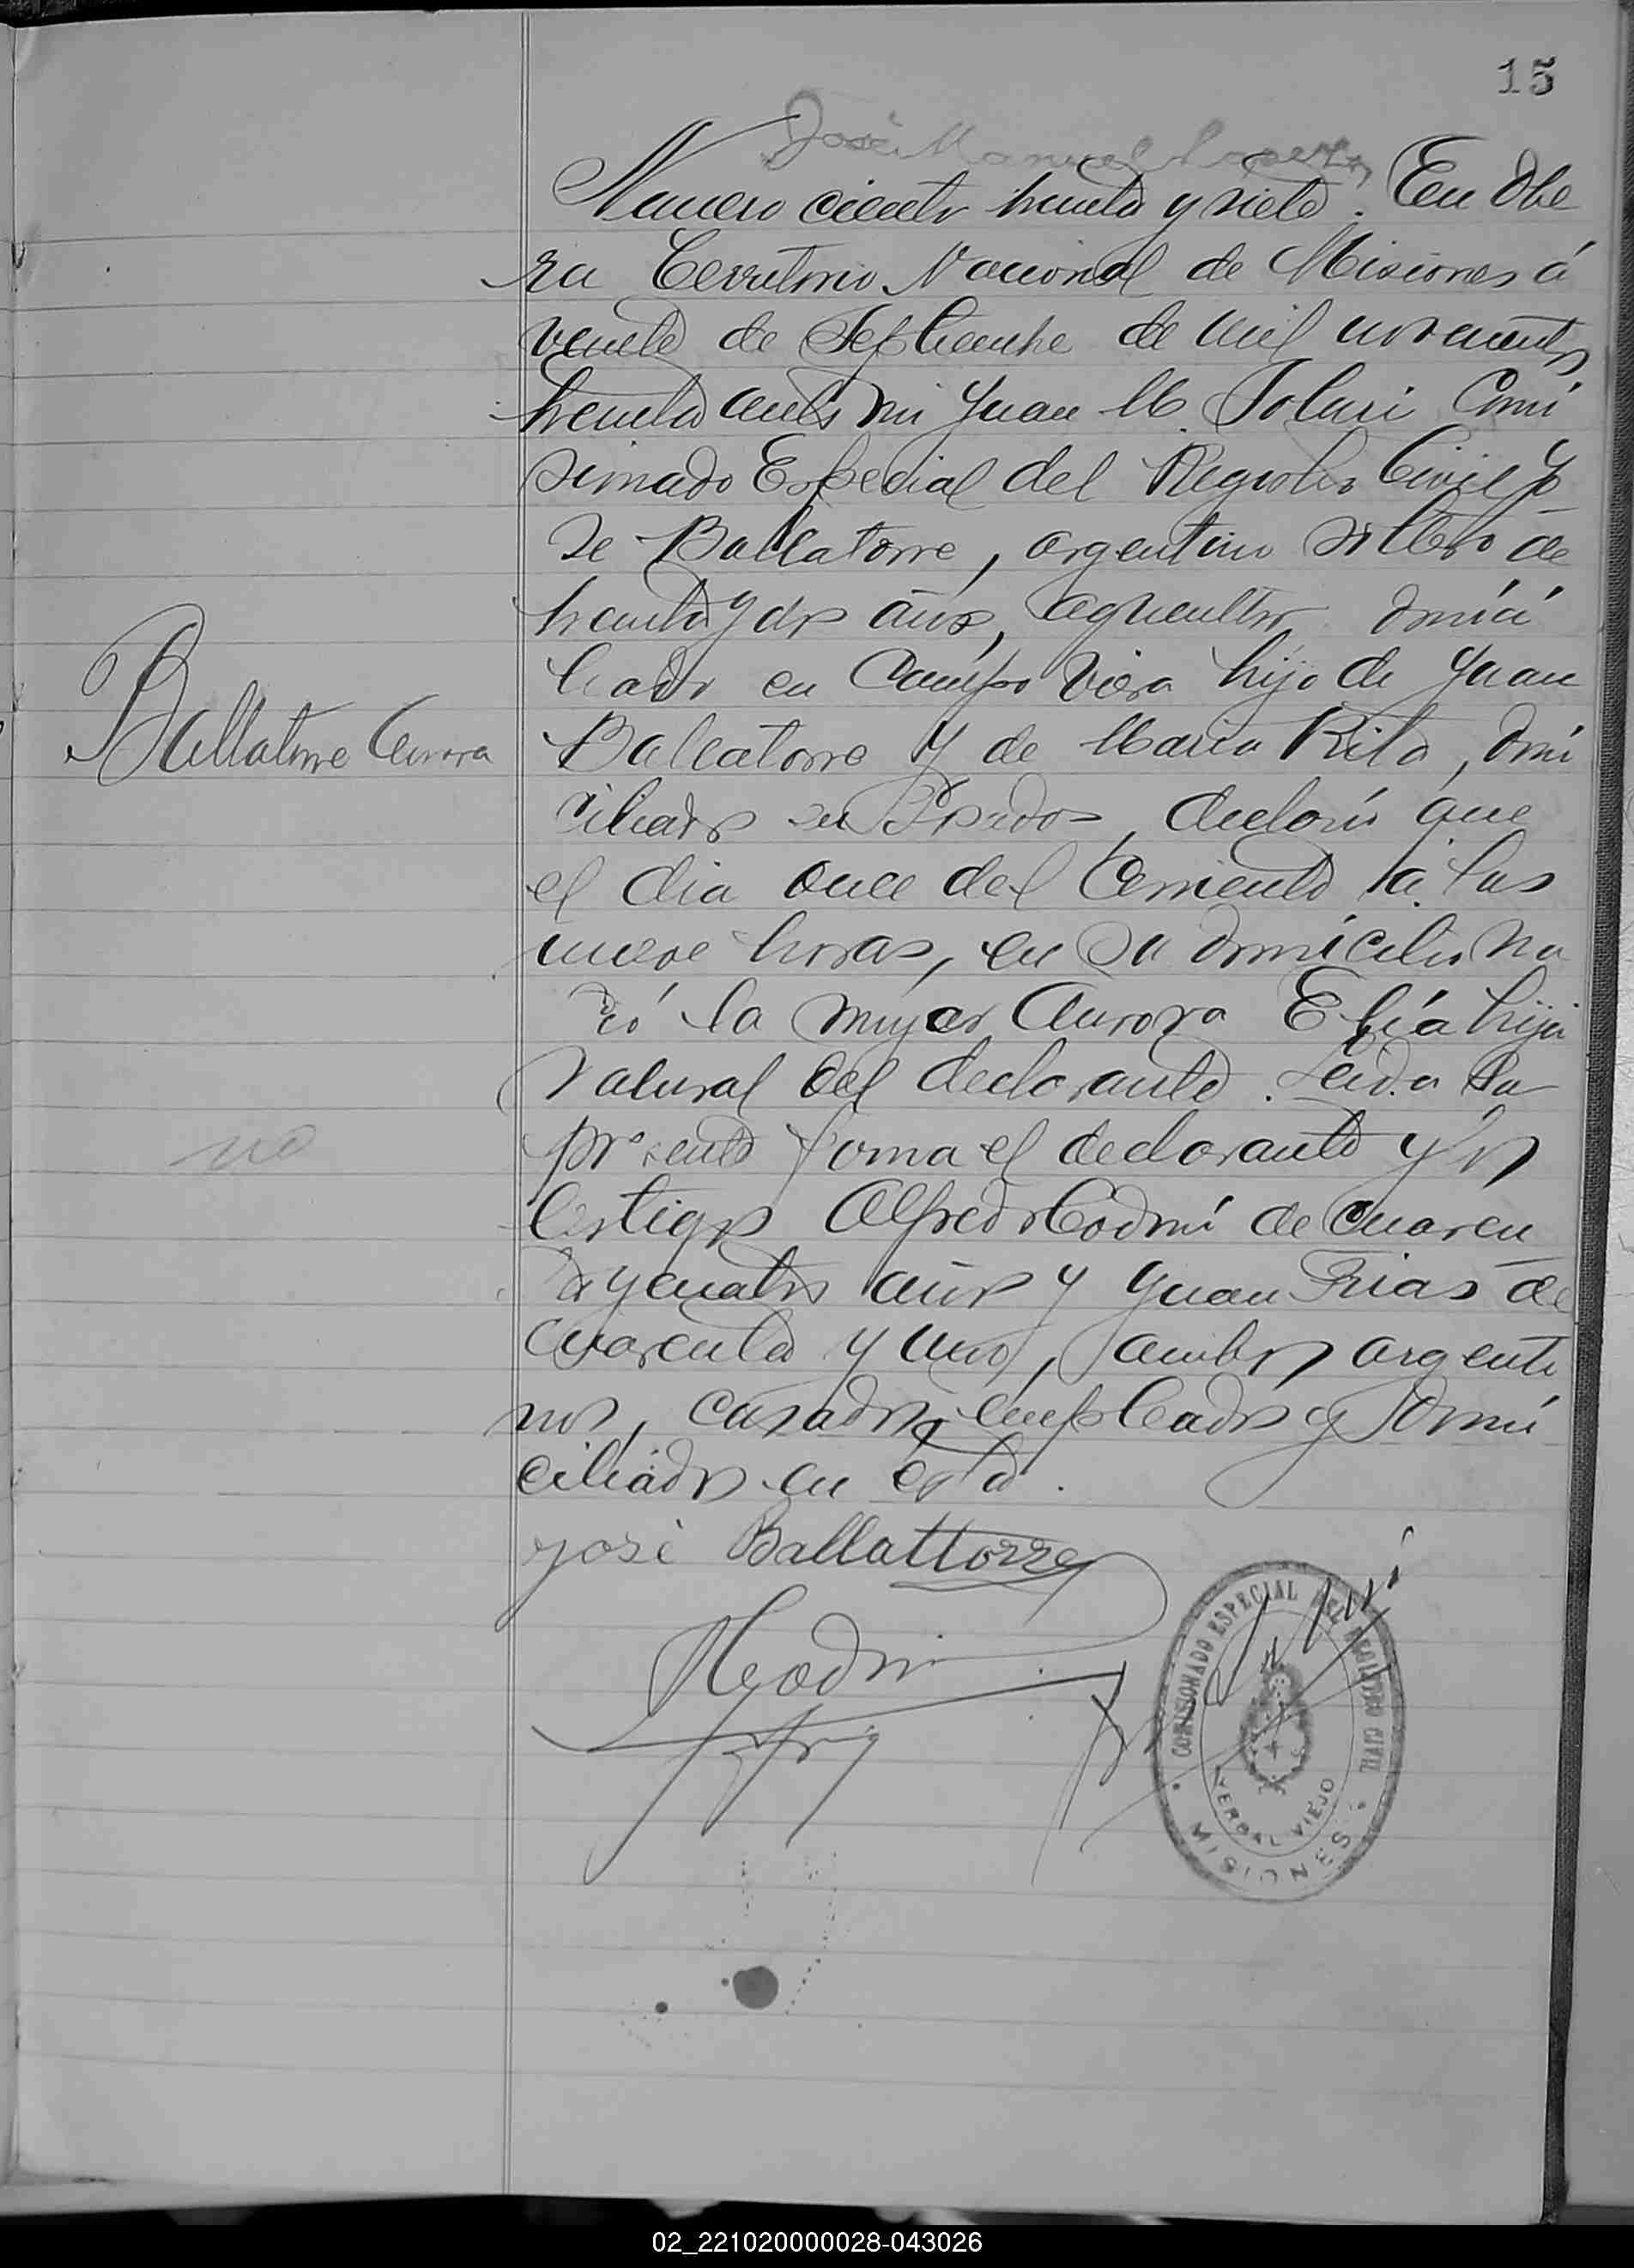 15
José Manuel
Numero ciento treinta y siete. En Obe
ra Territorio Nacional de Misiones á
veinte de Septiembre de mil novecientos
treinta ante mi Juan M. Solari Comi
sionado Especial del Registro Civil Jo
se Ballatorre, argentino soltero de
treinta y dos años, agricultor domici
liado en Campo Viera hijo de Juan
Ballatorre y de Maria Rita, domi
ciliados en Posadas, declaró que
el dia once del corriente á las
nueve horas, en su domicilio na
ció la mujer Aurora Elía hija
natural del declarante. Leida la
presente firma el declarante y los
testigos Alfredo Codrni de cuaren
ta y cuatro años y Juan Frias de
cuarenta y uno, ambos argenti
nos, casados, empleados y domi
ciliados en esta.
Ballatorre Aurora
no
José Ballattorre
COMISIONADO ESPECIAL DEL REGISTRO CIVIL
YERBAL VIEJO
MISIONES
02_221020000028-043026